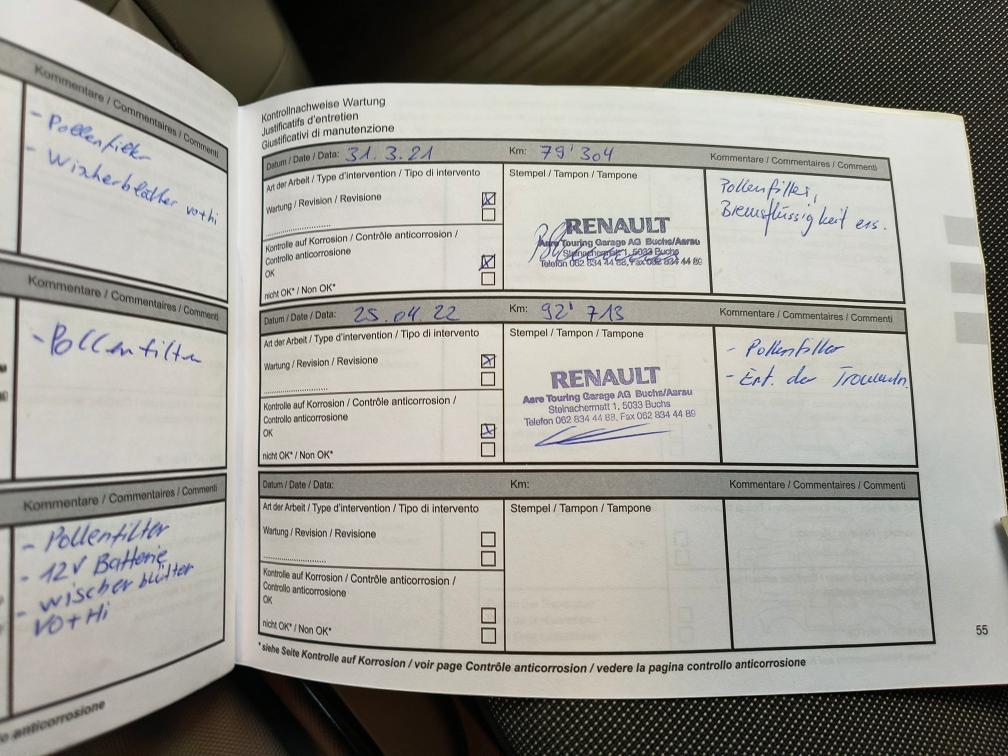 Kommentare / Commentaires / Commenti
- Pollenfilter
- Wischerblätter vo+hi
Kommentare / Commentaires / Commenti
- Pollenfilter
Kommentare / Commentaires / Commenti
- Pollenfilter
- 12V Batterie
- wischerblätter
VO+Hi
anticorrosione
Kontrollnachweise Wartung
Justificatifs d'entretien
Giustificativi di manutenzione
Datum / Date / Data: 31.3.21 Km: 79'304 Kommentare / Commentaires / Commenti
Art der Arbeit / Type d'intervention / Tipo di intervento
Wartung / Revision / Revisione
Kontrolle auf Korrosion / Contrôle anticorrosion /
Controllo anticorrosione
OK
nicht OK* / Non OK*
Stempel / Tampon / Tampone
RENAULT
Aare Touring Garage AG Buchs/Aarau
Steinachermatt 1, 5033 Buchs
Telefon 062 834 44 88, Fax 062 834 44 89
Pollenfilter,
Bremsflüssigkeit ers.
Datum / Date / Data: 25.04.22 Km: 92'713 Kommentare / Commentaires / Commenti
Art der Arbeit / Type d'intervention / Tipo di intervento
Wartung / Revision / Revisione
Kontrolle auf Korrosion / Contrôle anticorrosion /
Controllo anticorrosione
OK
nicht OK* / Non OK*
Stempel / Tampon / Tampone
RENAULT
Aare Touring Garage AG Buchs/Aarau
Steinachermatt 1, 5033 Buchs
Telefon 062 834 44 88, Fax 062 834 44 89
- Pollenfilter
- Ent. der
Datum / Date / Data: Km: Kommentare / Commentaires / Commenti
Art der Arbeit / Type d'intervention / Tipo di intervento
Wartung / Revision / Revisione
Kontrolle auf Korrosion / Contrôle anticorrosion /
Controllo anticorrosione
OK
nicht OK* / Non OK*
Stempel / Tampon / Tampone
* siehe Seite Kontrolle auf Korrosion / voir page Contrôle anticorrosion / vedere la pagina controllo anticorrosione
55